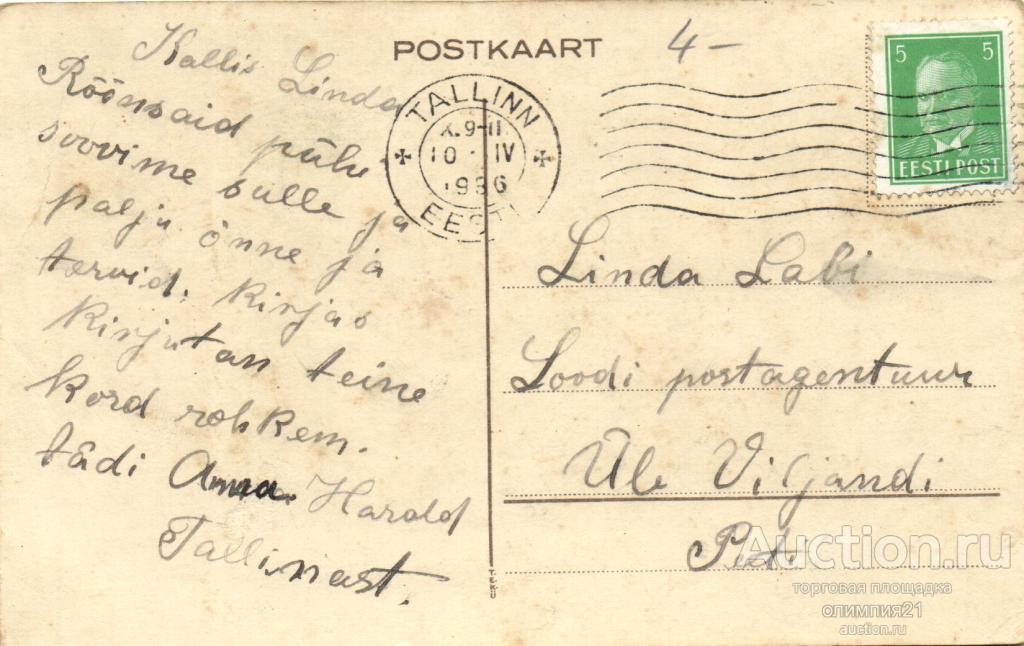 POSTKAART
4-
5 5
EESTI POST
TALLINN
K. 9-11
10 IV
1936
EESTI
Kallis Linda
Rõõmsaid pühi
soovime sulle ja
palju õnne ja
tervid. Kirjas
Kirjutan teine
kord rohkem.
tädi Anna. Harold
Tallinast.
Linda Labi
Loodi postagentuur
Üle Viljandi
T.EKÜ
Auction.ru
торговая площадка
олимпия21
auction.ru